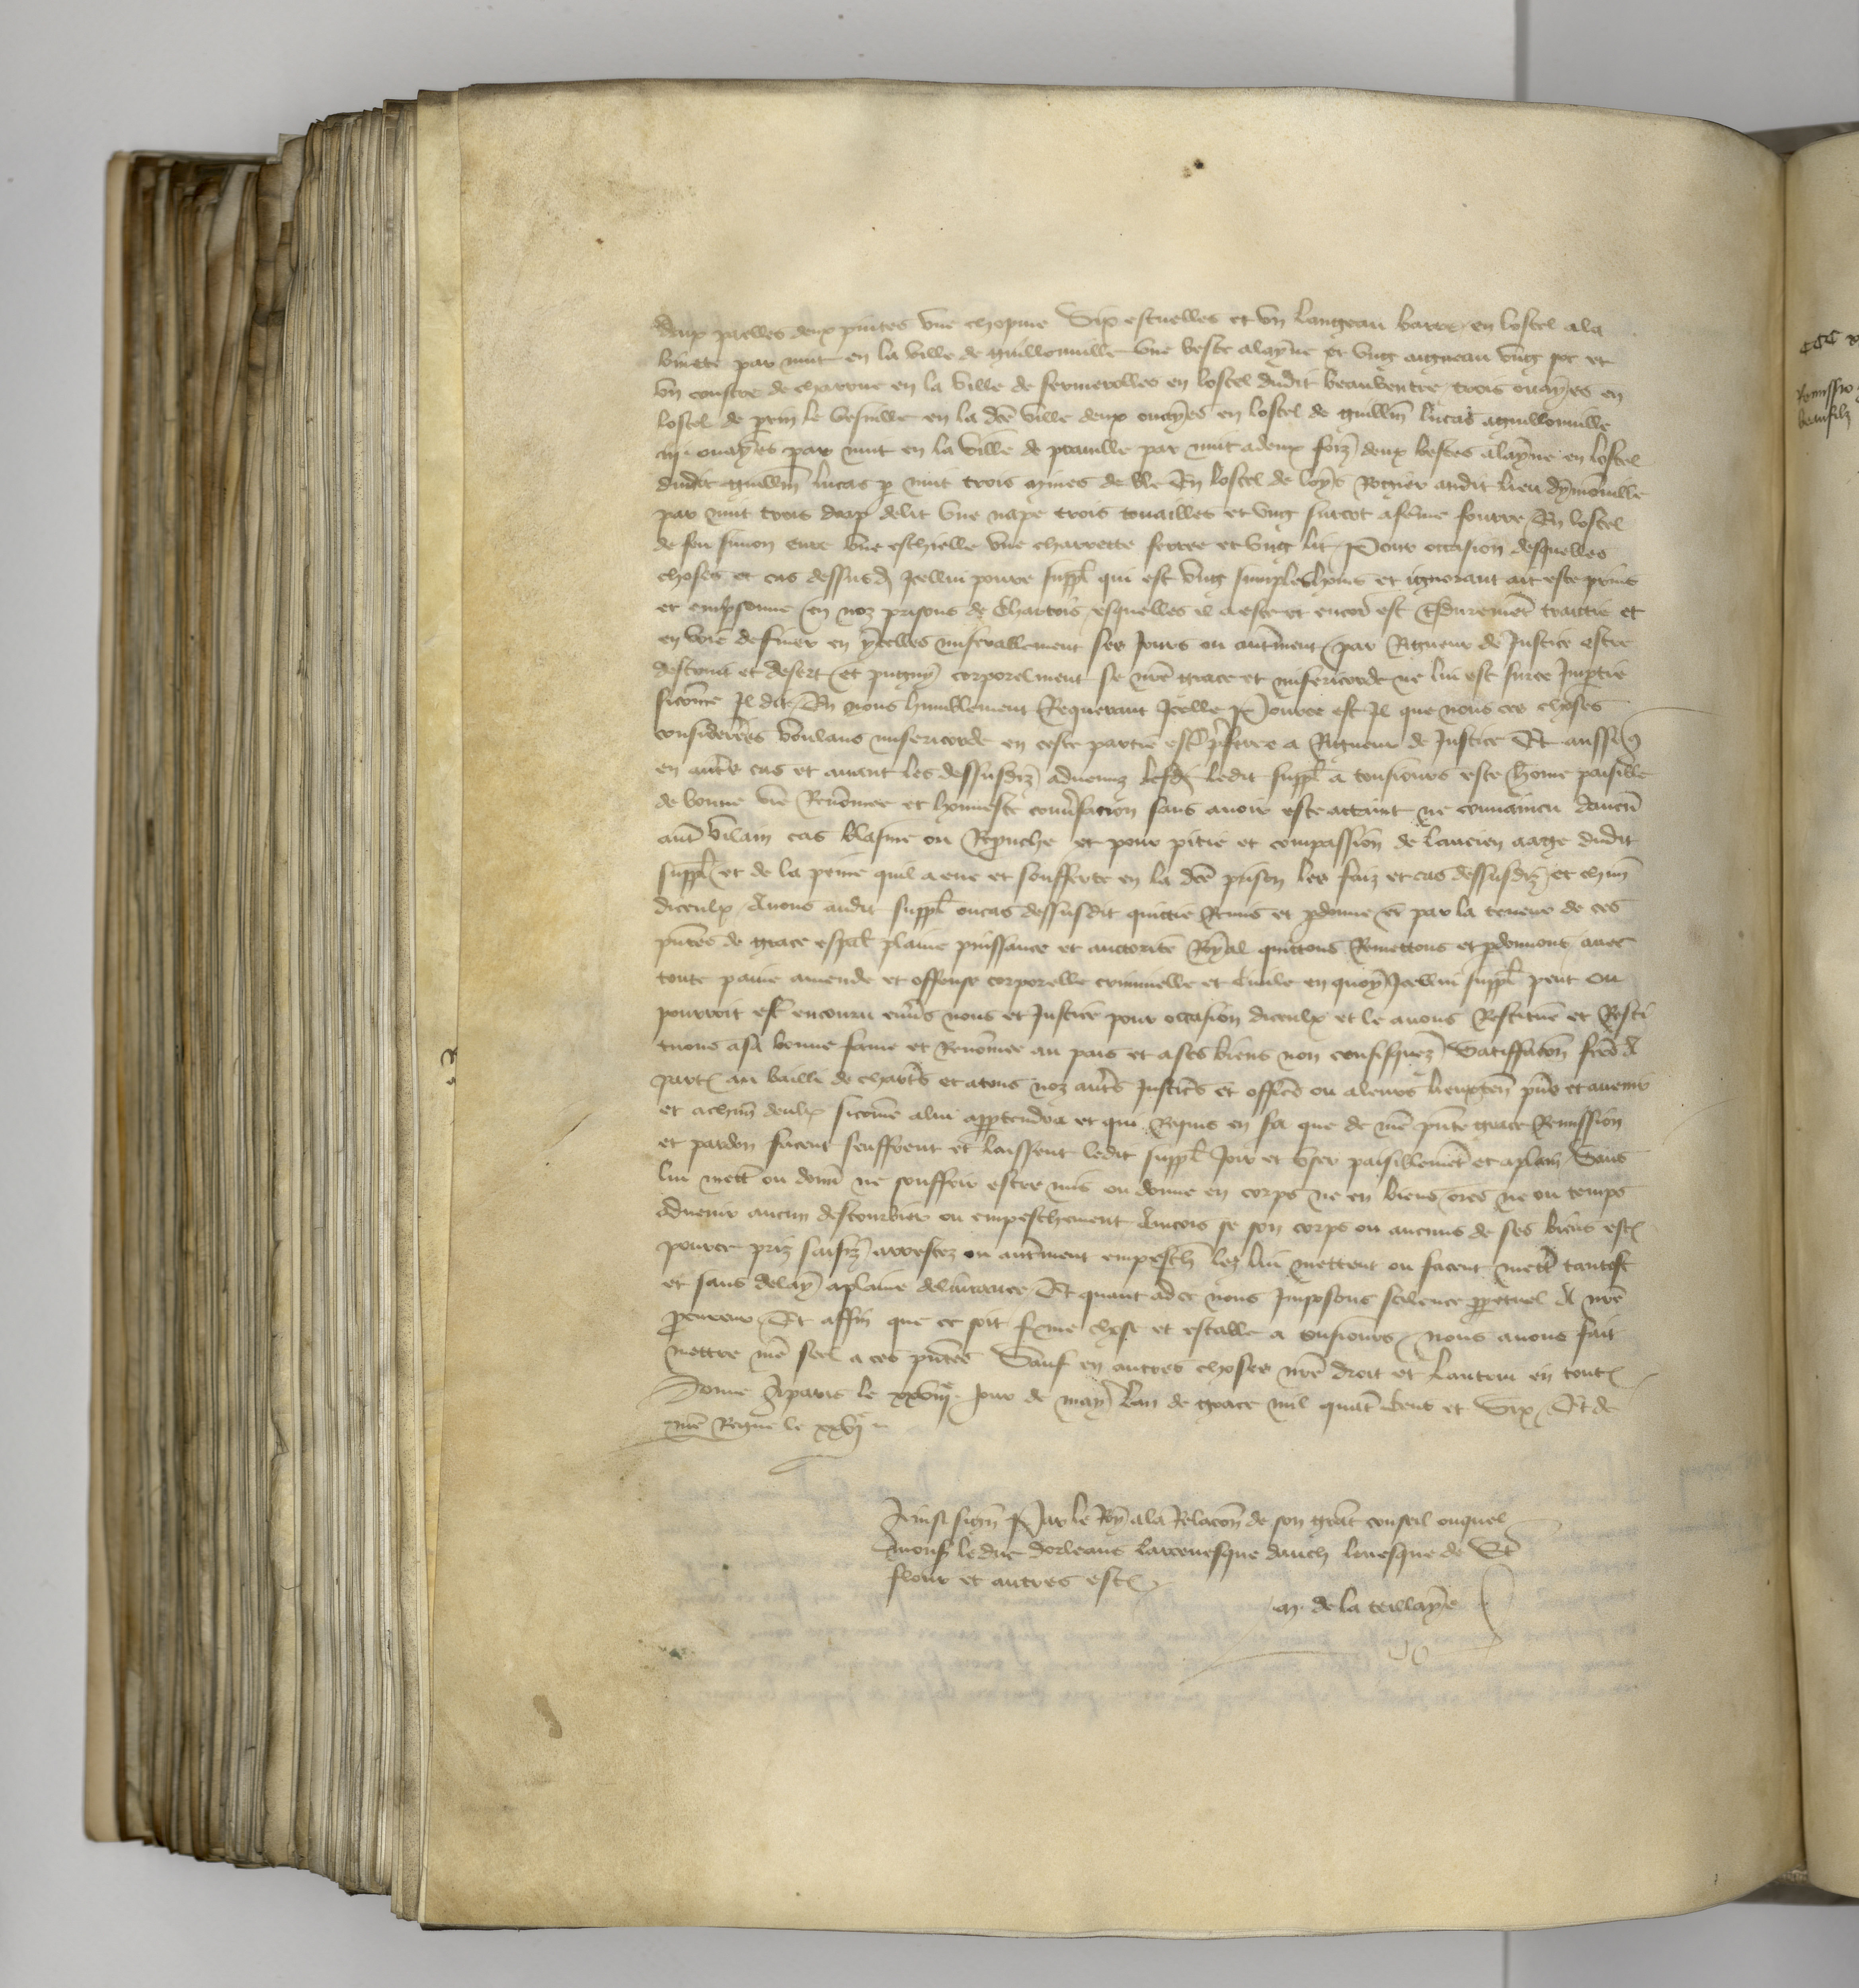 deux paelles deux pintes une chopine Six escuelles et un langeau barre en lostel ala
binete par nuit en la ville de guillonville une beste alayne et ung aigneau ung soc et
un coustre de charrue en la ville de fermerolles en lostel dudit beauventre trois ouayes en
lostel de prin le vesville en la dce ville deux ouayes en lostel de guillm lucas aguillonville
iij ouayes par nuit en la ville de praville par nuit adeux foiz deux bestes alayne en lostel
dudit guillm lucas p nuit trois mines de ble En lostel de loys Rogier audit lieu dymonville
par nuit trois drap delit une nape trois touailles et ung surcot afeme fourre En lostel
de feu simon eure une eschielle une charrette ferree et ung lit Pour occasion desquelles
choses et cas dessusd Icellui povre suppl qui est ung simples homs et ignorant ait este prins
et emprisonne en noz prisons de Chartres esquelles il a este et encor est Esduremet traictie et
en voie de finer en ycelles miserablement ses Jours ou autrment par Rigueur de Justice estre
destruit et desert et pugny corporelment se nre grace et misericorde ne lui est surce Impartie
sicome Il dit En nous humblement Requerant Icelle Pource est Il que nous ces choses
considerees voulans misericorde en ceste partie estre preferee a Rigueur de Justice Et aussi q
en autres cas et avant les dessusdiz advenuz lesd ledit suppl a tousiours este home paisible
de bonne vie Renomee et honneste conversacion sans avoir este attaint ne convaincu daucun
autre vilain cas blasme ou Reprouche et pour pitie et compassion de lancien aage dudit
suppl et de la peine quil a eue et soufferte en la dce prison les faiz et cas dessusdiz et chun
diceulx Avons audit suppl oucas dessusdit quictie Remis et pdonne et par la teneur de ces
pntes de grace espal plaine puissance et auctorite Royal quictons Remettons et pdonnons avec
toute paine amende et offense corporelle criminelle et civile en quoy Icellui suppl peut ou
pourroit estre encouru envers nous et Justice pour occasion diceulx et le avons Restitue et Resti
tuons asa bonne fame et Renomee au pais et ases biens non confisquez Satiffacion fcte A
partie au bailli de chartres et atous noz autres Justiciers et officiers ou aleurs lieuxten pns et avenir
et achun deulx sicome alui appartendra et qui Requis en sa que de nre pnte grace Remission
et pardon facent seuffrent et laissent ledit suppl Joir et user paisiblemet et aplain Sans
lui mettre ou donner ne souffrir estre mis ou donne en corps ne en biens ores ne ou temps
advenir aucun destourbier ou empeschement Aincois se son corps ou aucuns de ses biens est
pource priz saisiz arrestez ou autrment empesch les lui mettent ou facent mettre tantost
et sans delay aplaine delivrance Et quant ad ce nous Imposons scilence ppetuel A nre
procureur Et affin que ce soit ferme chose et estable a tousiours nous avons fait
mettre nre seel a ces pntes Sauf en autres choses nre droit et lautrui en toutes
Donne aparis le xxviije Jour de may lan de grace mil quatre cens et Six Et de
nre Regne le xxvje
Ainsi signe Par le Roy ala Relacion de son grant conseil ouquel
Mons le duc dorleans larcevesque dauch levesque de St
flour et autres est
M. de la teillaye
CCC
Remissio
beaufilz